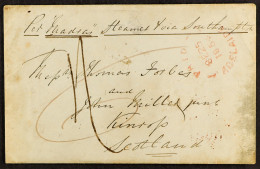 Per "Madras" Steamer via Southampton
Messrs Thomas Forbes
and
John Miller junr
Kinross
Scotland